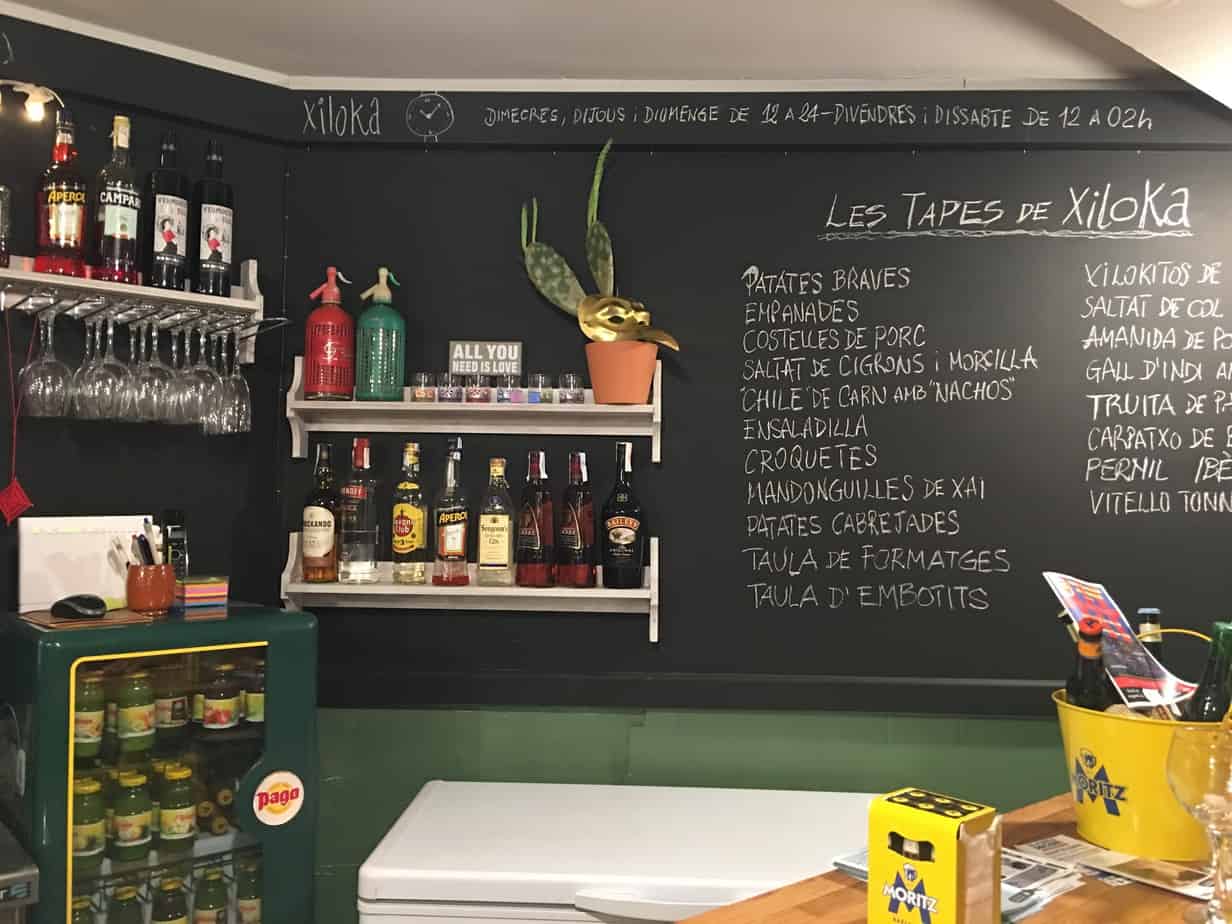 xiloka DIMECRES, DIJOUS i DIUMENGE DE 12 A 24-DIVENDRES i DISSABTE DE 12 A 02h
LES TAPES DE XiloKa
PATATES BRAVES
EMPANADES
COSTELLES DE PORC
SALTAT DE CIGRONS i MORCILLA
"CHILE" DE CARN AMB "NACHOS"
ENSALADILLA
CROQUETES
MANDONGUILLES DE XAI
PATATES CABREJADES
TAULA DE FORMATGES
TAULA D'EMBOTITS
XILOKITOS DE
SALTAT DE COL
AMANIDA DE
GALL D'INDI
TRUITA DE
CARPATXO DE
PERNIL
VITELLO
APEROL
CAMPARI
ALL YOU
NEED IS LOVE
Havana
Club
APEROL
BAILEYS
pago
MORITZ
MORITZ